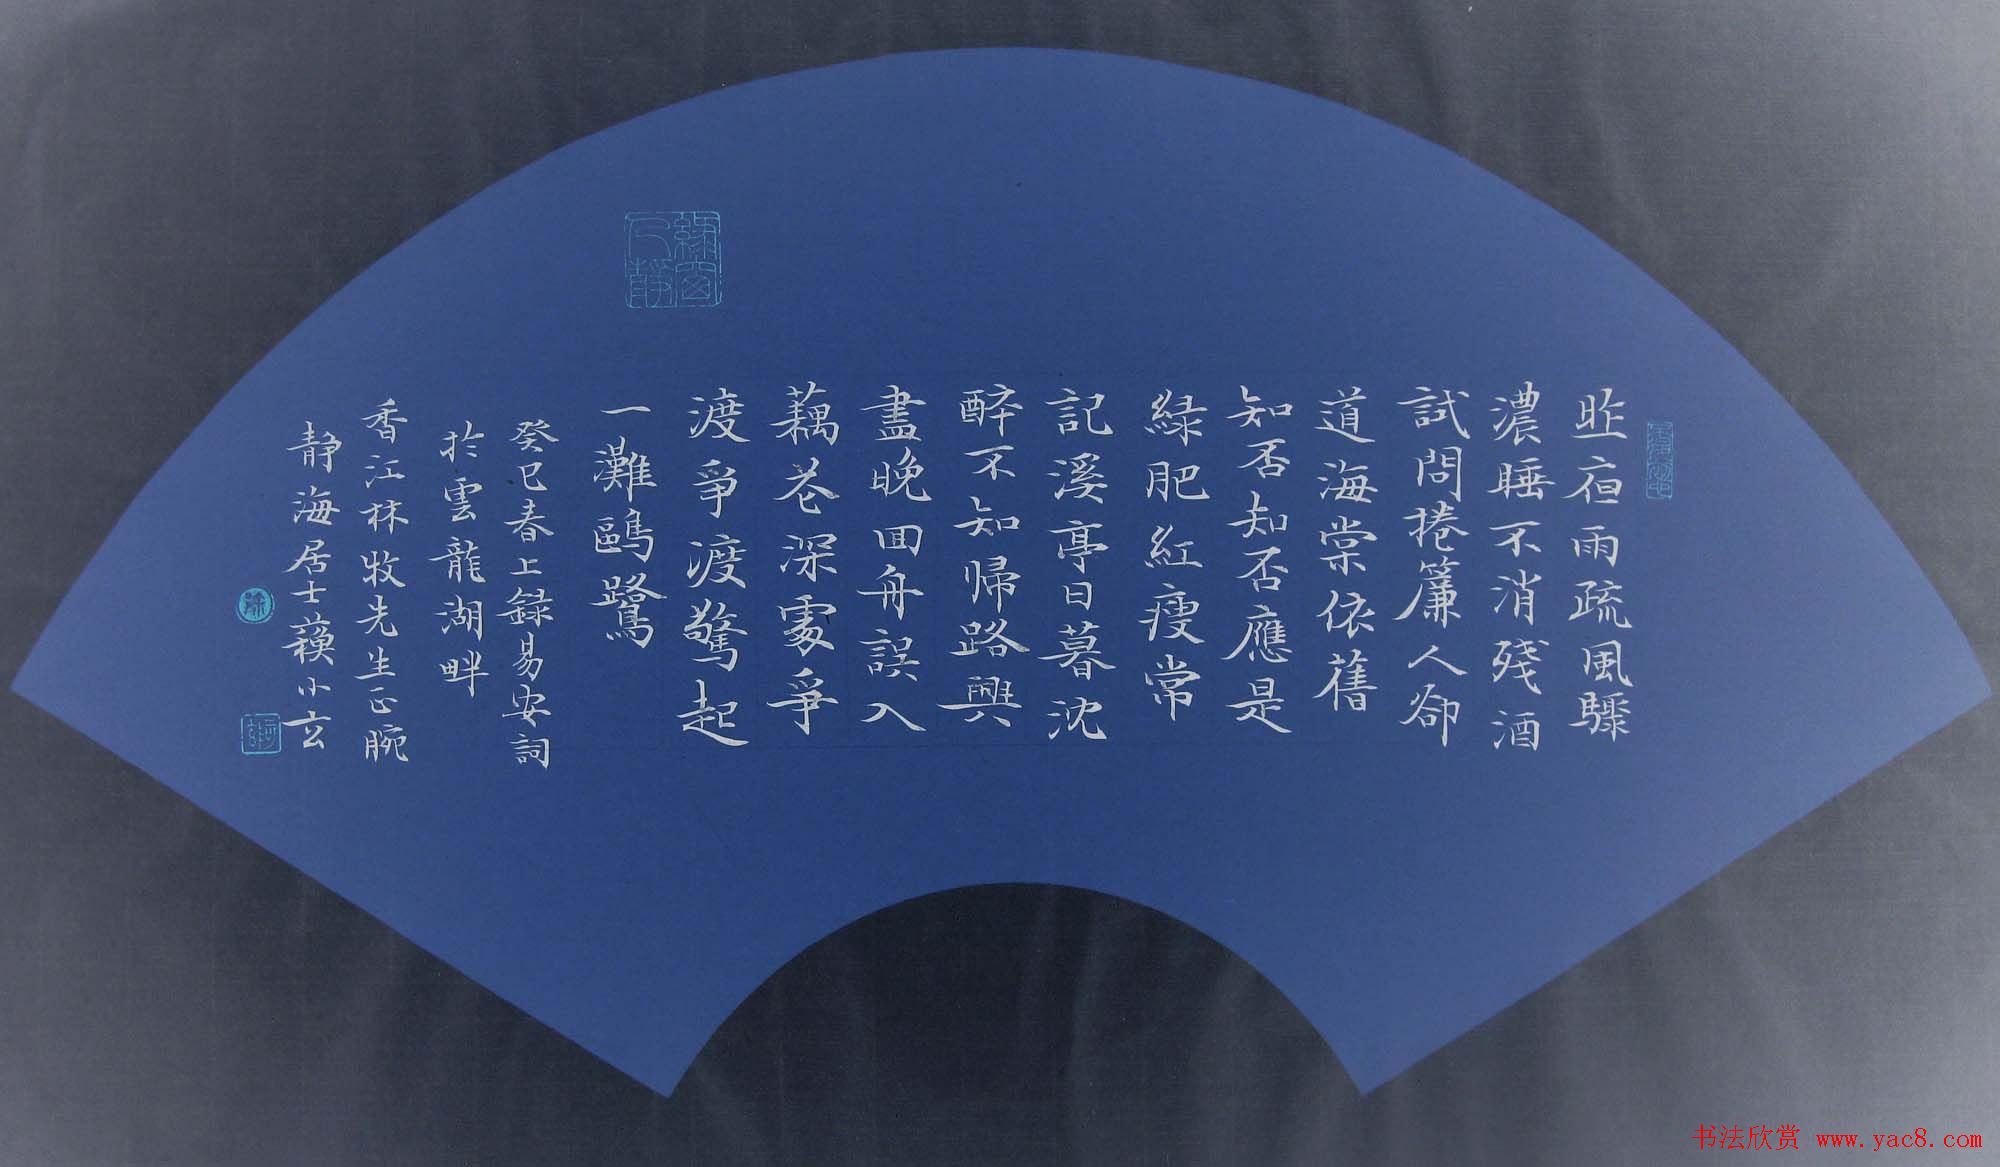 昨夜雨疏風驟
濃睡不消殘酒
試問捲簾人卻
道海棠依舊
知否知否應是
緑肥紅瘦常
記溪亭日暮沈
醉不知帰路興
盡晚回舟誤入
藕花深處爭
渡爭渡驚起
一灘鷗鷺
癸巳春上録易安詞
於雲龍湖畔
香江林牧先生正腕
静海居士蘋小玄
緑窗人靜
书法欣赏 www.yac8.com